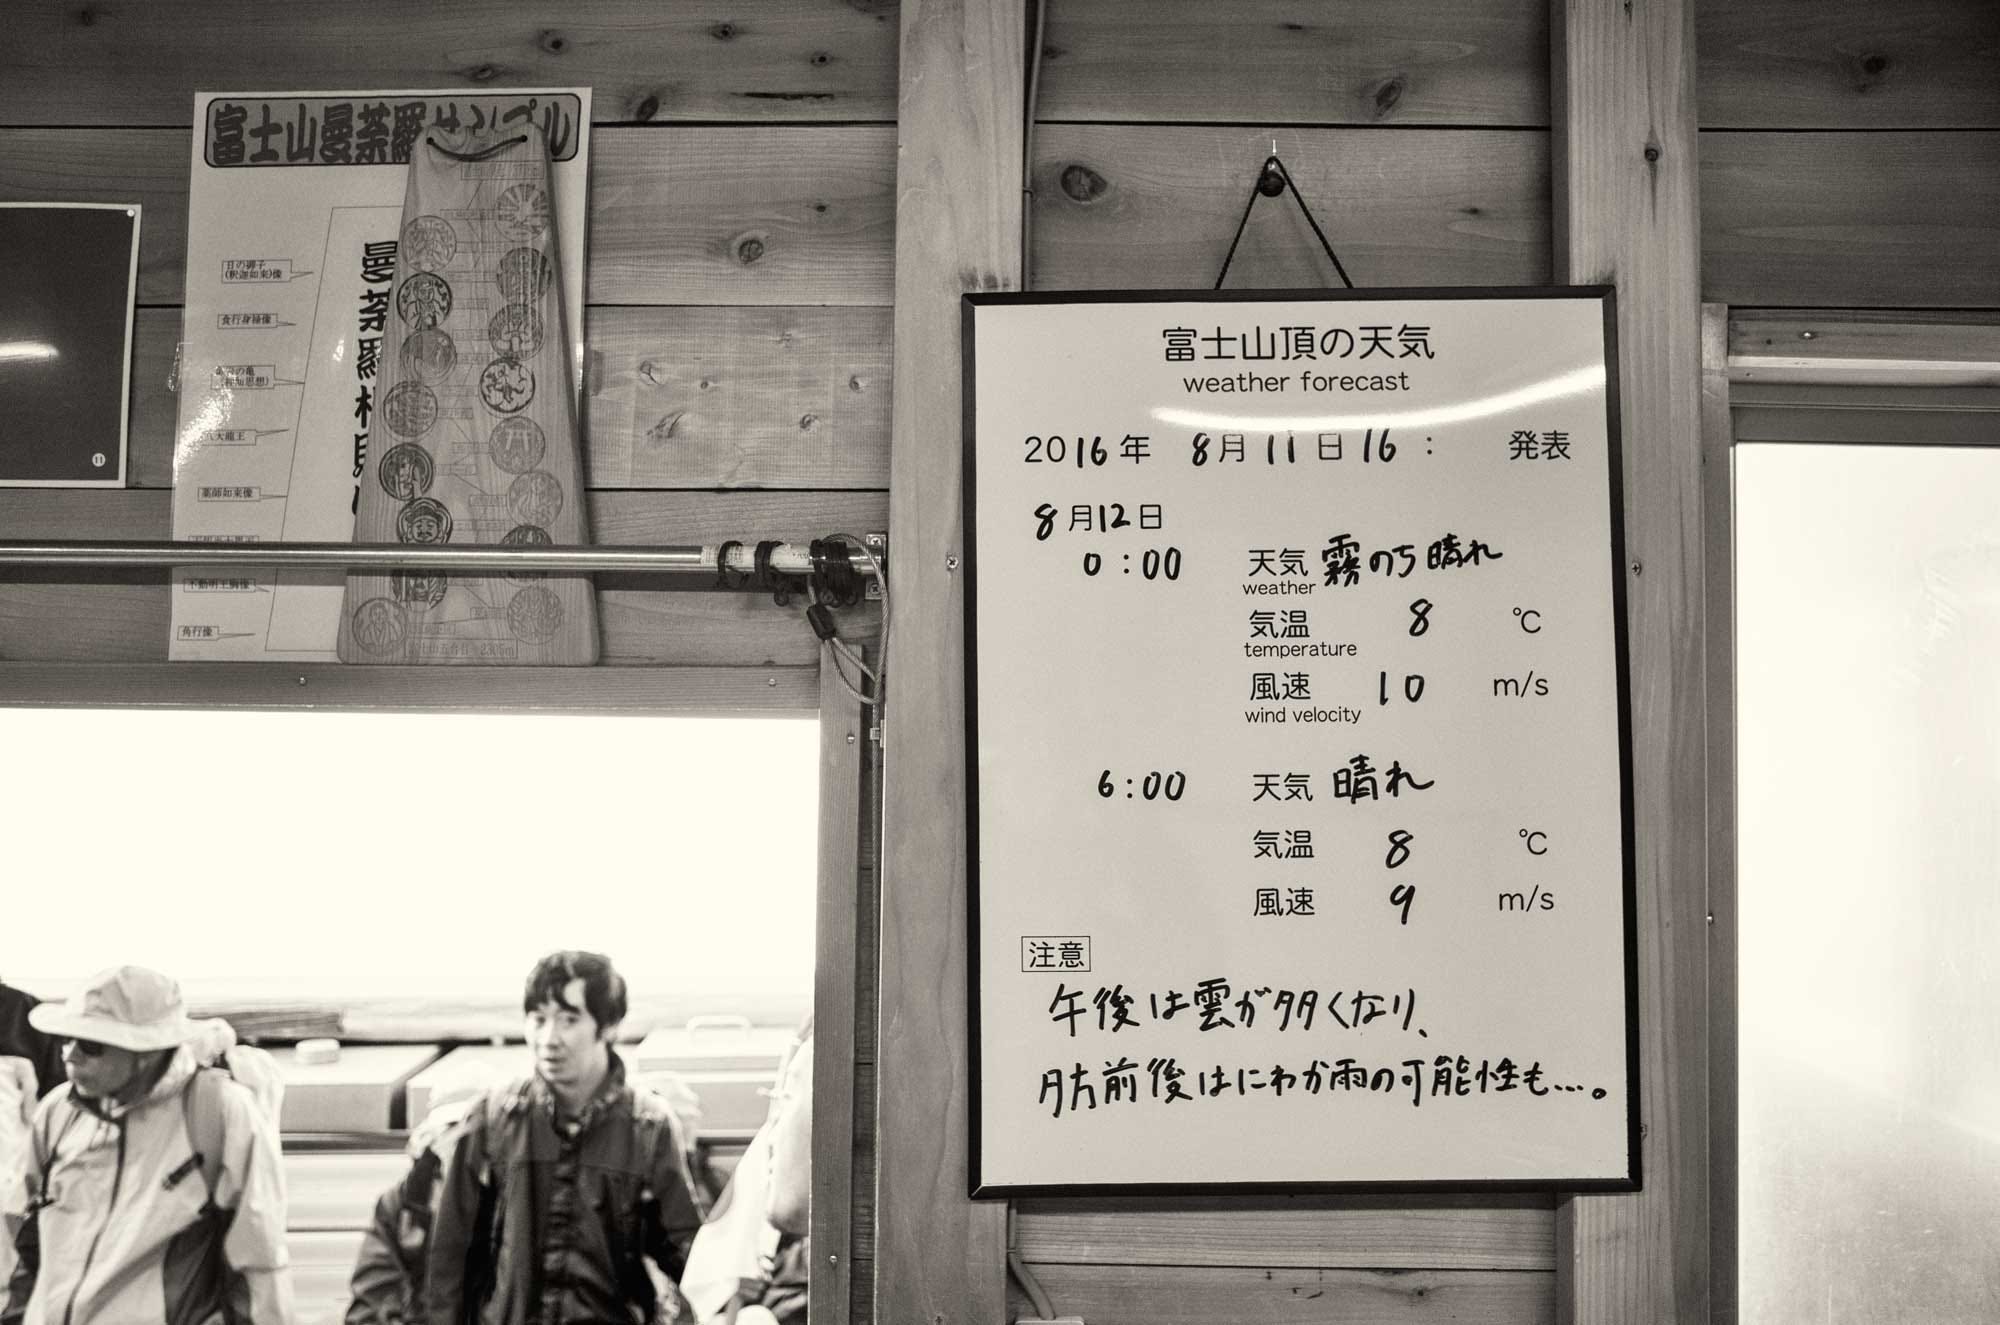 富士山曼荼羅サンプル
日の御子
(釈迦如来)像
食行身禄像
八大龍王
薬師如来像
不動明王胸像
角行像
11
富士山頂の天気
weather forecast
2016年 8月11日16: 発表
8月12日
0:00 天気 霧のち晴れ
weather
気温 8 ℃
temperature
風速 10 m/s
wind velocity
6:00 天気 晴れ
気温 8 ℃
風速 9 m/s
注意
午後は雲が多くなり、
夕方前後はにわか雨の可能性も…。